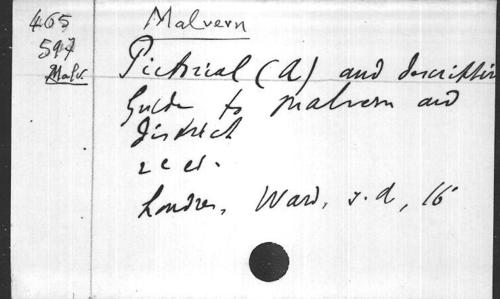 465
597
Malv.
Malvern
Pictorical (A) and descriptive
Guide to Malvern and
District
2e ed.
Londres, Ward, s.d, 16°